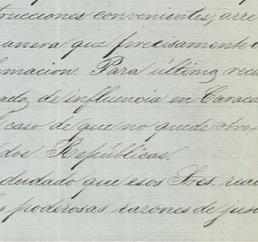 trucciones convenientes, arre
manera que precisamente
rmacion. Para último recu
ado, de influencia en Caraca
caso de que no quede otro
dos Repúblicas.
dudado que esos Sres. reco
poderosas razones de jus